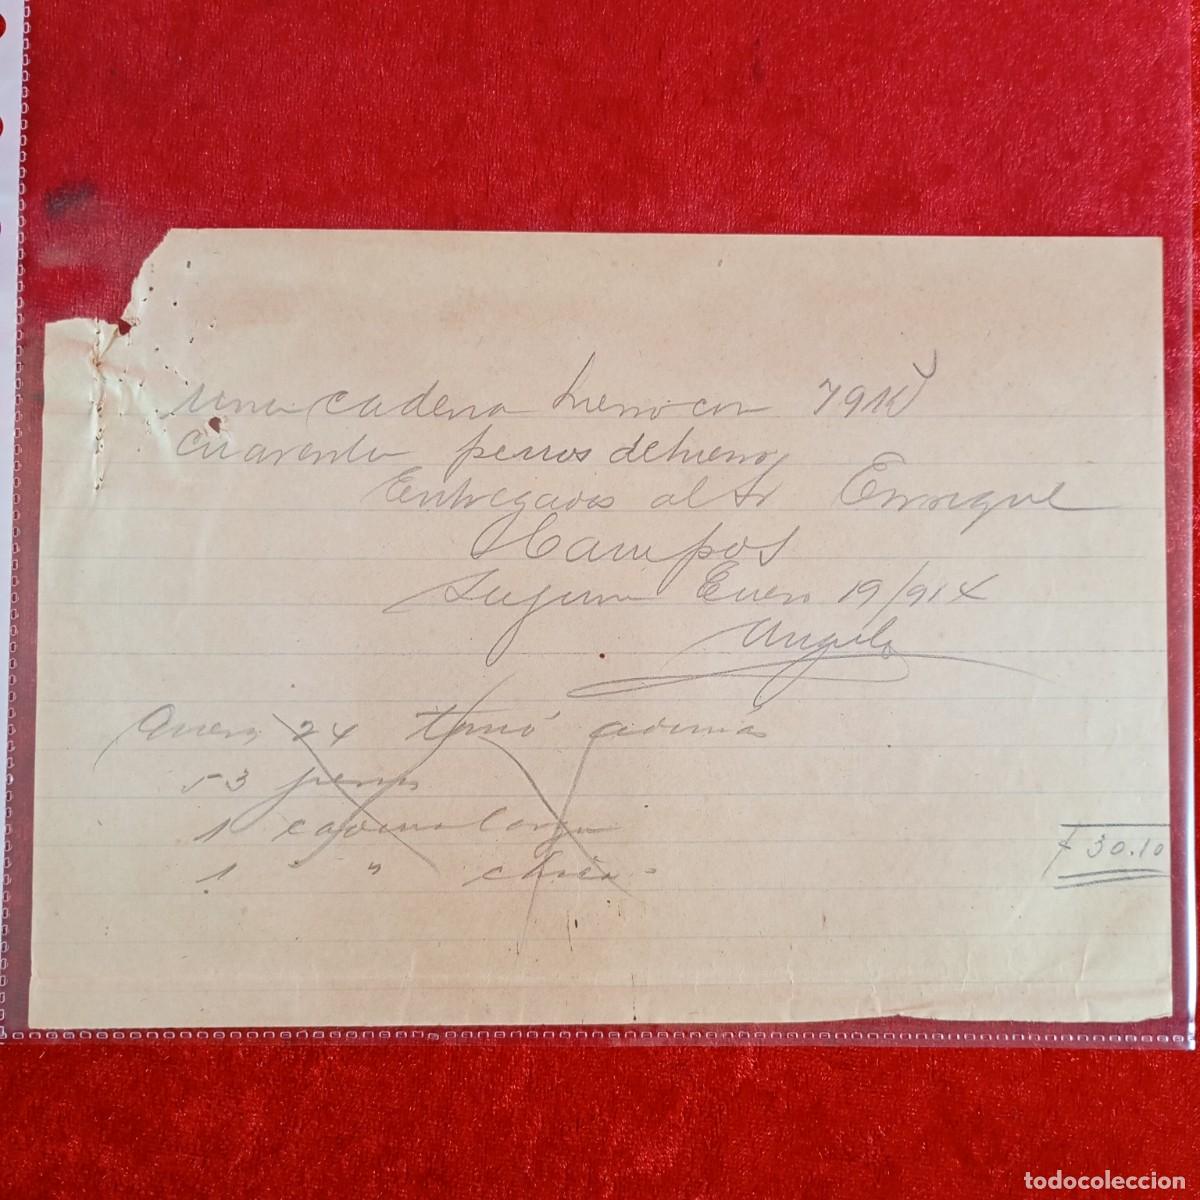 una cadena hierro con 79 K
cuarenta perros de hierro
Entregados al Sr Enrique
Campos
Enero 19/914
Angulo
Enero 24 tomó además
53 perros
1 cadena larga
1 " " chica -
30.10
todocoleccion